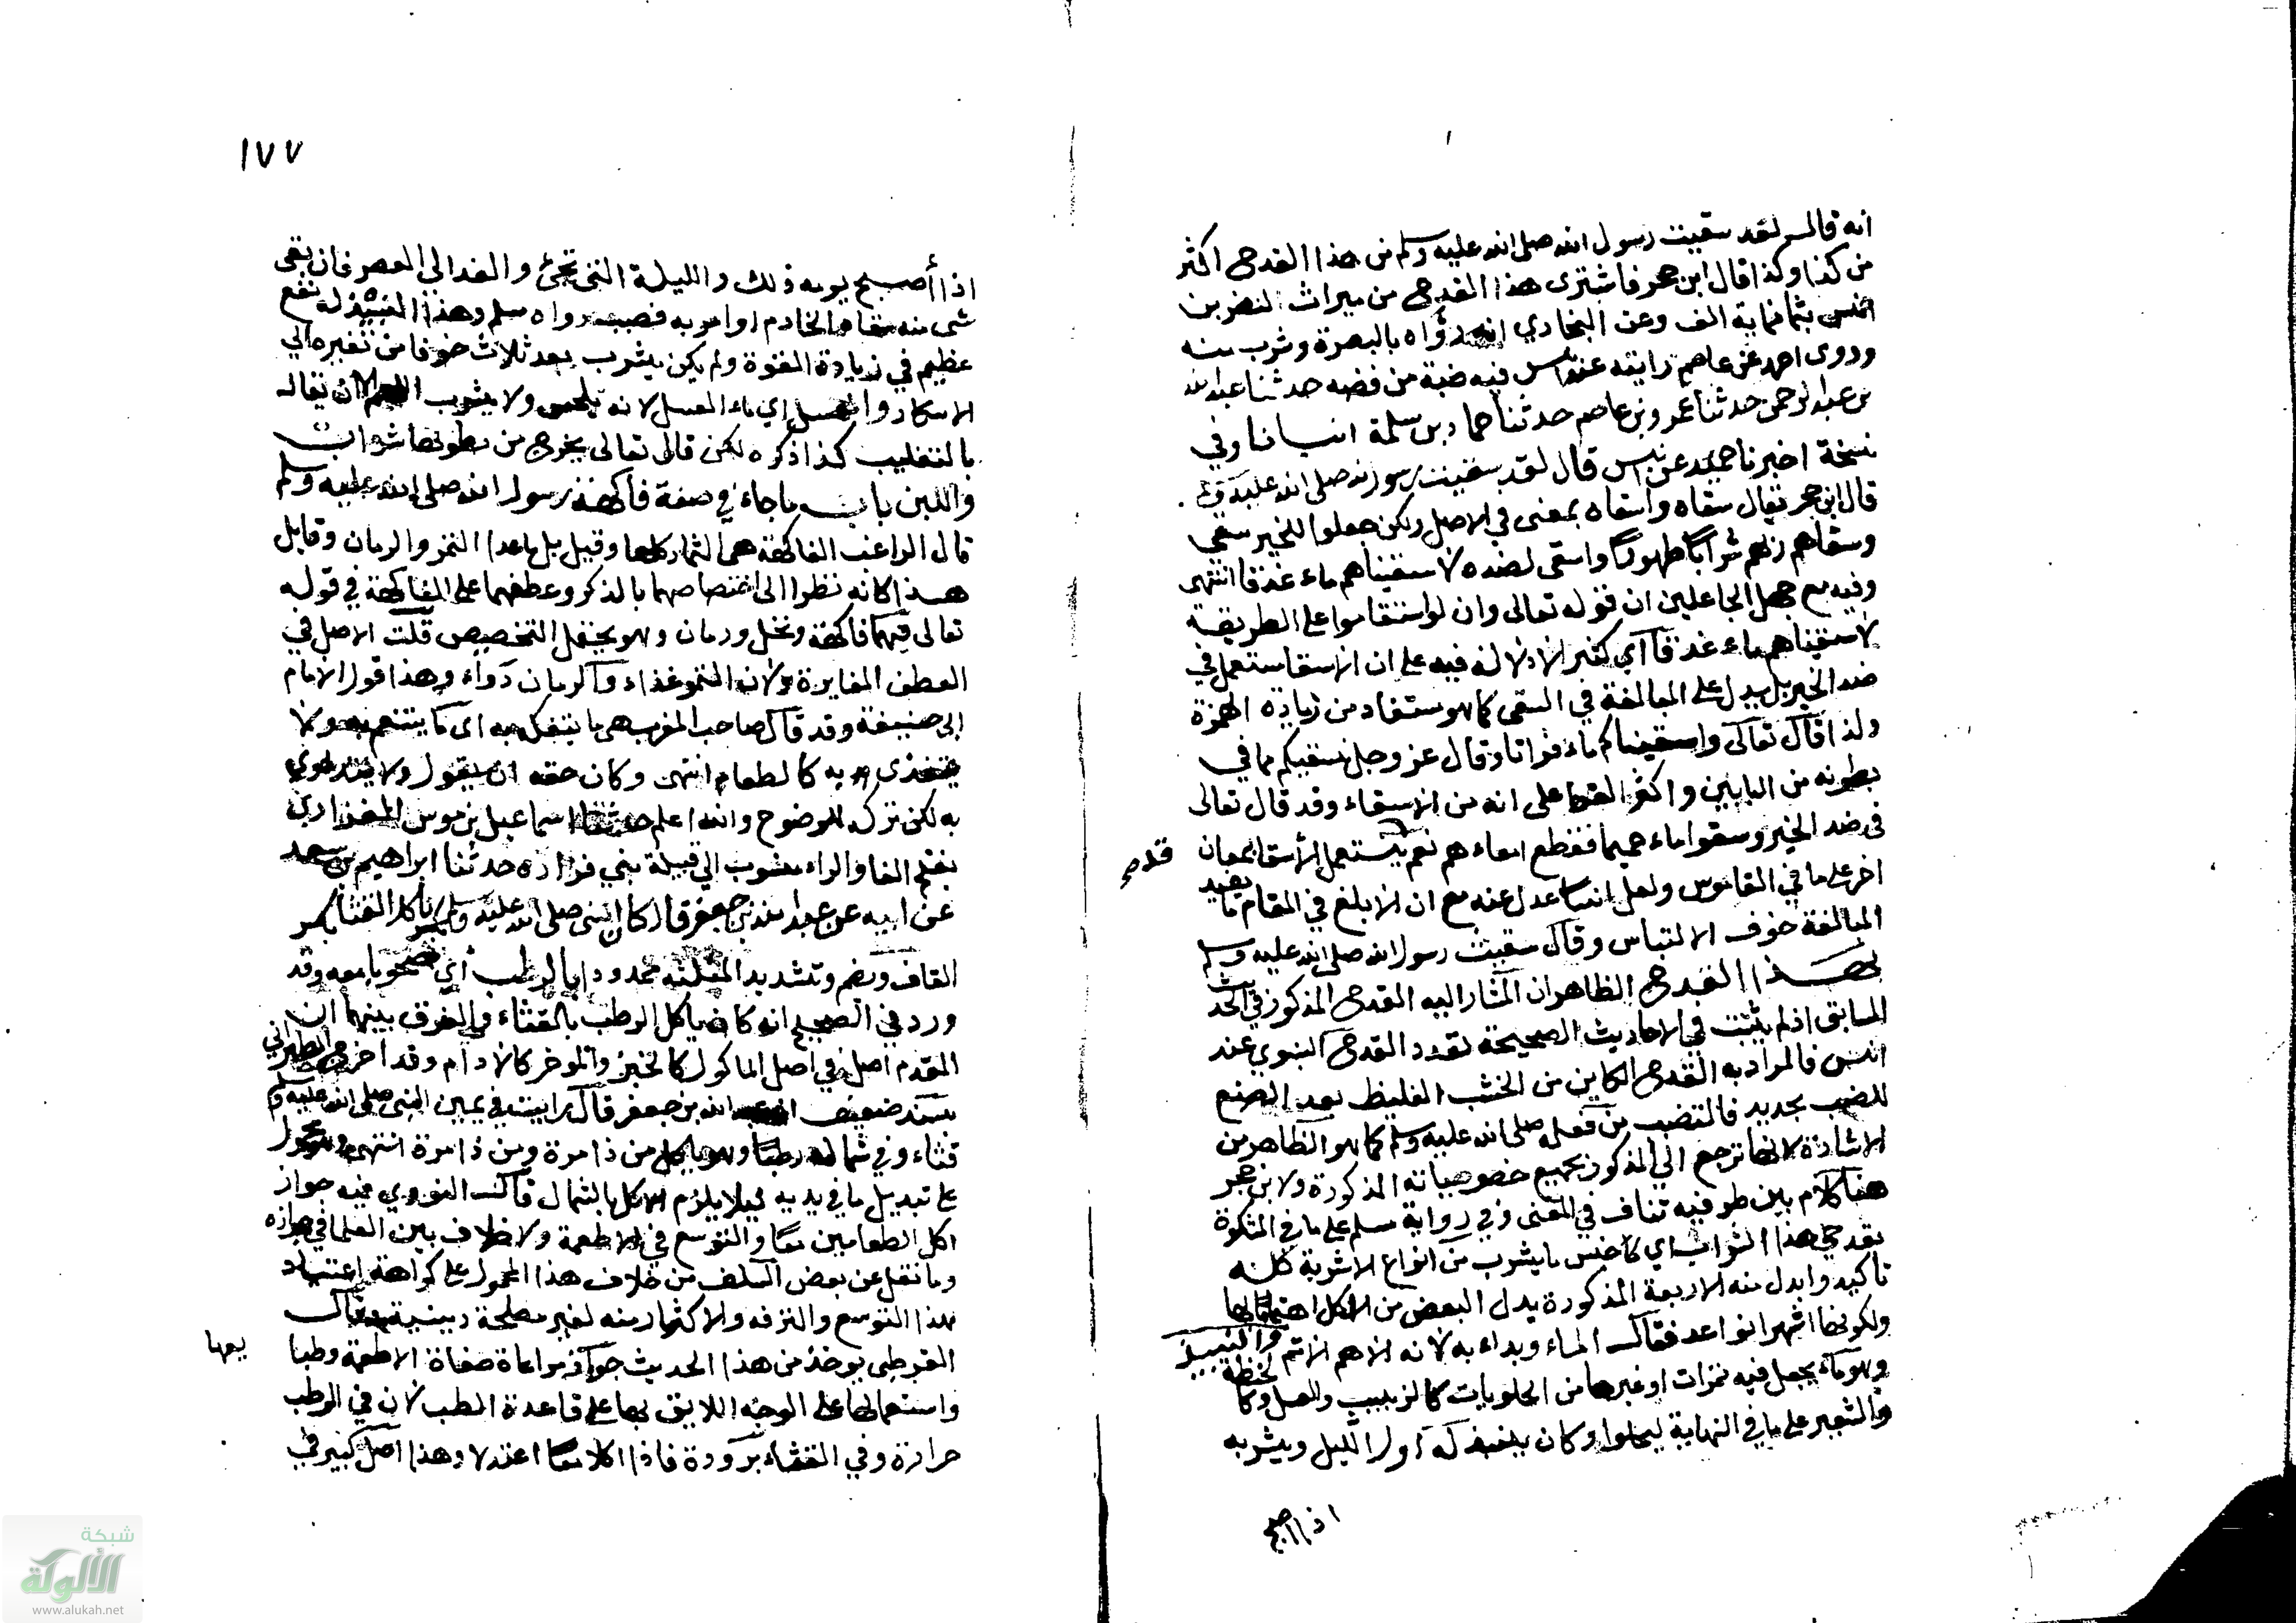 انه قال لقد سقيت رسول الله صلى الله عليه وسلم من هذا القدح اكثر
من كذا وكذا قال ابن حجر فاشترى هذا القدح من ميراث النضر بن
انس بثمانماية الف وعن البخاري انه رواه بالبصرة وشرب منه
وروى احمد عن عاصم رايته عند انس فيه ضبة من فضه حدثنا عبد الله
بن عبد الرحمن حدثنا عمرو بن عاصم حدثنا حماد بن سلمة انبانا وفي
نسخة اخبرنا حميد عن انس قال لقد سقيت رسول الله صلى الله عليه وسلم
قال ابن حجر يقال سقاه واسقاه بمعنى في الاصل ولكن جعلوا للخير سقى
وسقاهم ربهم شرابا طهورا واسقى لضده لاسقيناهم ماء غدقا انتهى
وفيه مع جهل الجاعلين ان قوله تعالى وان لو استقاموا على الطريقة
لاسقيناهم ماء غدقا اي كثيرا لا دلالة فيه على ان الاسقا مستعمل في
ضد الخير بل يدل على المبالغة في السقى كما هو مستفاد من زيادة الهمزة
ولذا قال تعالى واسقيناكم ماء فراتا وقال عز وجل نسقيكم مما في
بطونه من البابين واكثر القرا على انه من الاسقاء وقد قال تعالى
في ضد الخير وسقوا ماء حميما فقطع امعاءهم نعم يستعمل الأسقا بمعان
اخر على ما في القاموس ولعل انسا عدل عنه مع ان الابلغ في المقام ما يفيد
المبالغة خوف الالتباس وقال سقيت رسول الله صلى الله عليه وسلم
بهذا القدح الظاهر ان المشار اليه القدح المذكور في الحديث
السابق اذ لم يثبت في الاحاديث الصحيحة تعدد القدح النبوي عند
انس فالمراد به القدح الكاين من الخشب الغليظ بعد الصنع
للضبب بحديد فالتضبب من فعله صلى الله عليه وسلم كما هو الظاهر من
الاشارة لانها ترجع الى المذكور بجميع خصوصياته المذكورة ولابن حجر
هنا كلام بين طرفيه تناف في المعنى وفي رواية مسلم على ما في المشكوة
بقدحي هذا الشراب اي كاجنس ما يشرب من انواع الاشربة كله
تاكيد وابدل منه الاربعة المذكورة بدل البعض من الكل اهتماما بها
ولكونها اشهر انواعه فقال الماء وبداء به لانه الاهم الاتم والنبيذ
وهو ماء يجعل فيه تمرات او غيرها من الحلويات كالزبيب والعسل وكالحنطة
والشعير على ما في النهاية ليحلوا وكان ينبذ له اول الليل ويشربه
قدح
اذا اصبح
١٧٧
اذا أصبح يومه ذلك والليلة التي تجئ والغد الى العصر فان بقى
شى منه سقاه الخادم او امر به فصب رواه مسلم وهذا النبيذ له نفع
عظيم في زيادة القوة ولم يكن يشرب بعد ثلاث خوفا من تغيره الى
الاسكار والعسل اي ماء العسل لانه يلحس ولا يشرب اللهم الا ان يقال
بالتغليب كذا ذكره لكن قال تعالى يخرج من بطونها شراب
واللبن باب ما جاء في صفة فاكهة رسول الله صلى الله عليه وسلم
قال الراغب الفاكهة هي الثمار كلها وقيل بل ما عدا التمر والرمان وقايل
هذا كانه نظر الى اختصاصهما بالذكر وعطفهما على الفاكهة في قوله
تعالى فيهما فاكهة ونخل ورمان وهو يحتمل التخصيص قلت الاصل في
العطف المغايرة ولان التمر غذاء والرمان دواء وهذا قول الامام
ابي حنيفة وقد قال صاحب المغرب هي ما يتفكه به اي ما يتنعم به ولا
يتغذى به كالطعام انتهى وكان حقه ان يقول ولا يتداوي
به لكن تركه للوضوح والله اعلم حدثنا اسماعيل بن موسى الفزاري
بفتح الفا والراء منسوب الى قبيلة بني فزاره حدثنا ابراهيم بن سعد
عن ابيه عن عبد الله بن جعفر قال كان النبي صلى الله عليه وسلم ياكل القثا بكسر
القاف ويضم وتشديد المثلثه ممدودا بالرطب اي مصحوبا معه وقد
ورد في الصحيح انه كان ياكل الرطب بالقثاء والفرق بينهما ان
المقدم اصل في اصل الماكول كالخبز والموخر كالادام وقد اخرج الطبراني
بسند ضعيف ان عبد الله بن جعفر قال رايت في يمين النبي صلى الله عليه وسلم
قثاء وفي شماله رطبا وهو ياكل من ذا مرة ومن ذا مرة انتهى وهو محمول
على تبديل ما في يديه ليلا يلزم الاكل بالشمال قال النووي فيه جواز
اكل الطعامين معا والتوسع في الاطعمة ولا خلاف بين العلما في جوازه
وما نقل عن بعض السلف من خلاف هذا المحمول على كراهة اعتياد
هذا التوسع والترفه والاكثار منه لغير مصلحة دينية وقال
القرطبى يوخذ من هذا الحديث جواز مراعاة صفاة الاطعمة وطبا
يعها
واستعمالها على الوجه اللايق بها على قاعدة الطب لان في الرطب
حرارة وفي القثاء برودة فاذا اكلا معا اعتدلا وهذا اصل كبير في
شبكة
الألوكة
www.alukah.net